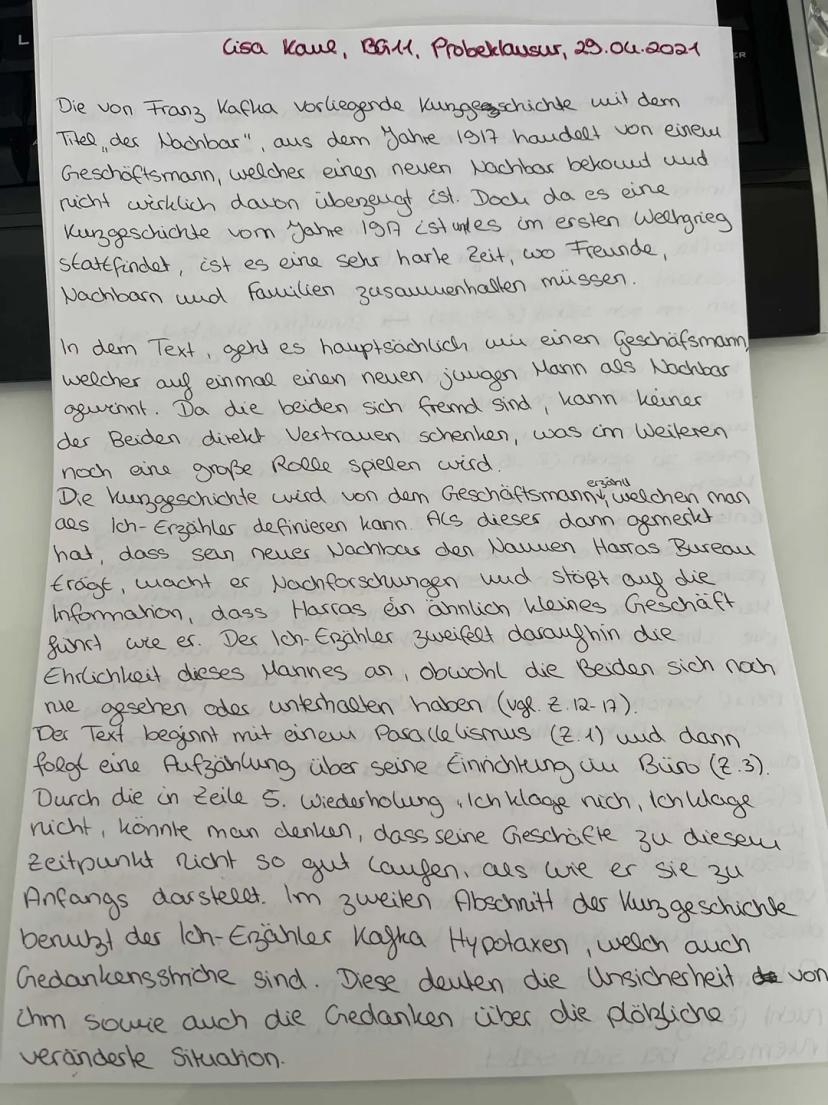 Lisa Kaul, BG11, Probeklausur, 29.04.2021
Die von Franz Kafka vorliegende Kurzgeschichte mit dem
Titel „der Nachbar", aus dem Jahre 1917 handelt von einem
Geschäftsmann, welcher einen neuen Nachbar bekomd und
nicht wirklich davon überzeugt ist. Doch da es eine
Kurzgeschichte vom Jahre 1917 ist und es im ersten Weltgrieg
stattfindet, ist es eine sehr harte Zeit, wo Freunde,
Nachbarn und Familien zusammenhalten müssen.
In dem Text, geht es hauptsächlich um einen Geschäfsmann,
welcher auf einmal einen neuen jungen Mann als Nachbar
gewinnt. Da die beiden sich fremd sind, kann keiner
der Beiden direkt Vertrauen schenken, was im Weiteren
noch eine große Rolle spielen wird.
Die Kurzgeschichte wird von dem Geschäftsmann erzählt, welchen man
als Ich-Erzähler definieren kann. Als dieser dann gemerkt
hat, dass sein neuer Nachbar den Namen Harras Bureau
trägt, macht er Nachforschungen und stößt auf die
Information, dass Harras ein ähnlich kleines Geschäft
führt wie er. Der Ich-Erzähler zweifelt daraufhin die
Ehrlichkeit dieses Mannes an, obwohl die Beiden sich noch
nie gesehen oder unterhalten haben (vgl. Z. 12-17).
Der Text beginnt mit einem Parallelismus (Z.1) und dann
folgt eine Aufzählung über seine Einrichtung im Büro (Z.3).
Durch die in Zeile 5. Wiederholung „Ich klage nich, Ich klage
nicht, könnte man denken, dass seine Geschäfte zu diesem
Zeitpunkt nicht so gut laufen, als wie er sie zu
Anfangs darstellt. Im zweiten Abschnitt der Kurzgeschichte
benutzt der Ich-Erzähler Kafka Hypotaxen, welch auch
Gedankensstriche sind. Diese deuten die Unsicherheit von
ihm sowie auch die Gedanken über die plötzliche
veränderte Situation.